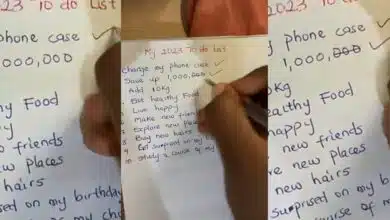 2023 To do List
phone case ✓
1,000,000
y Food
appy
friends
ew places
hairs
ised on my birthday
My 2023 To do List
Change my phone case ✓
Save up 1,000,000 ✓
Add 10kg
Eat healthy Food
Live happy
Make new friend
Explore new place
8 Buy new hairs
9 Get surprised on my
10 Study a course of my
2023 To do
phone case
1,000,000 ✓
0kg
ealthy Food
happy
new friends
new places
new hairs
prised on my birt
course of